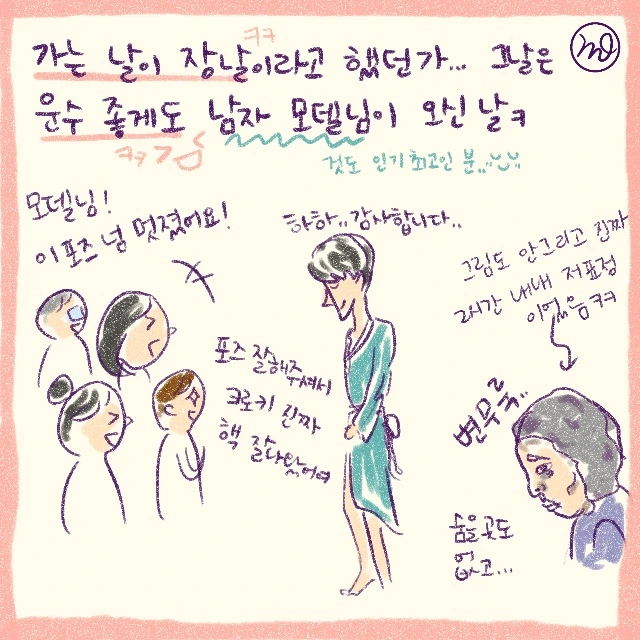 ㅋㅋ
가는 날이 장날이라고 했던가... 그날은
운수 좋게도 남자 모델님이 오신 날ㅋ
ㅋㅋ
것도 인기 최고인 분..
모델님!
이 포즈 넘 멋졌어요!
하하.. 감사합니다..
포즈 잘해주셔서
크로키 진짜
핵 잘나왔어여
그림도 안그리고 진짜
2시간 내내 저표정
이었음ㅋㅋ
변무룩..
숨을곳도
없고...